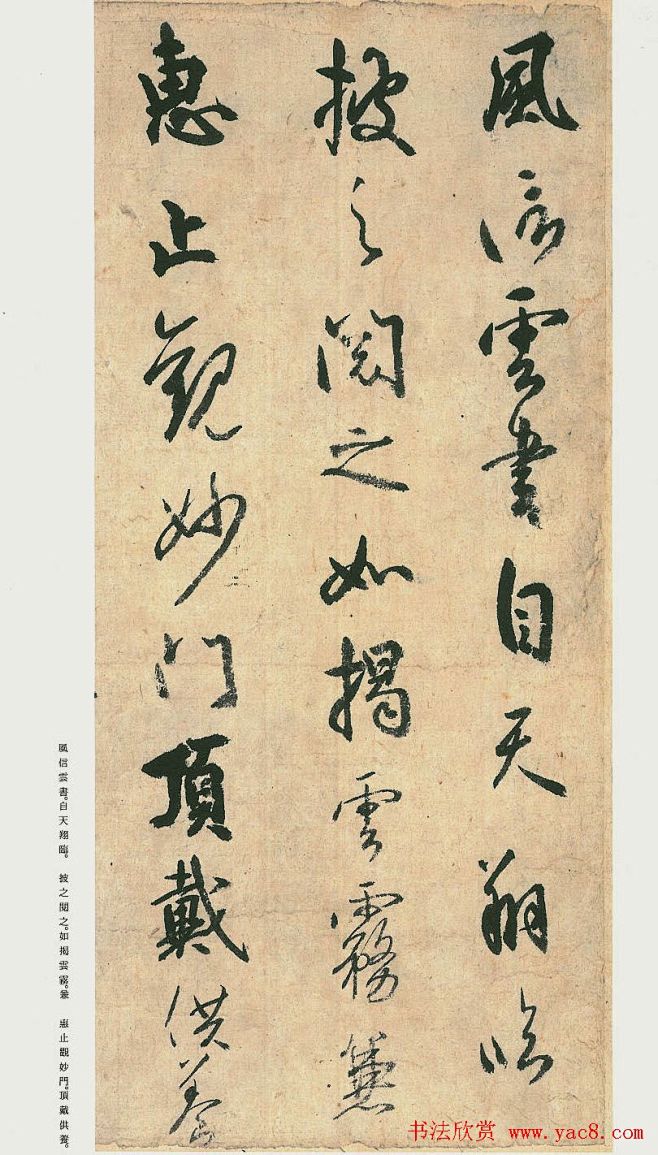 風信雲書自天翔臨
披之閱之如揭雲霧兼
惠止觀妙門頂戴供養
風信雲書。自天翔臨。披之閱之。如揭雲霧。兼惠止觀妙門。頂戴供養。
书法欣赏 www.yac8.com